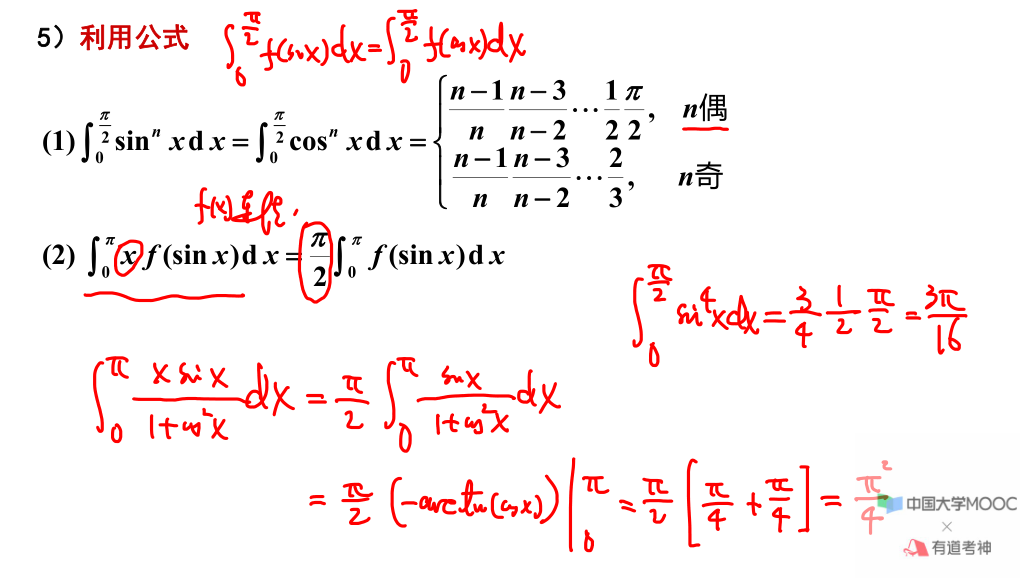 5）利用公式 ∫₀^{π/2} f(sinx)dx = ∫₀^{π/2} f(cosx)dx
(1) ∫₀^{π/2} sinⁿ x d x = ∫₀^{π/2} cosⁿ x d x = { n−1/n n−3/n−2 ⋯ 1/2 π/2, n偶
n−1/n n−3/n−2 ⋯ 2/3, n奇
f(x)连续.
(2) ∫₀^π x f (sin x)d x = π/2 ∫₀^π f (sin x)d x
∫₀^{π/2} sin⁴xdx = 3/4 1/2 π/2 = 3π/16
∫₀^π x sin x/1+cos²x dx = π/2 ∫₀^π sin x/1+cos²x dx
= π/2 (−arctan(cosx)) |₀^π = π/2 [π/4 + π/4] = π²/4
中国大学MOOC
×
有道考神